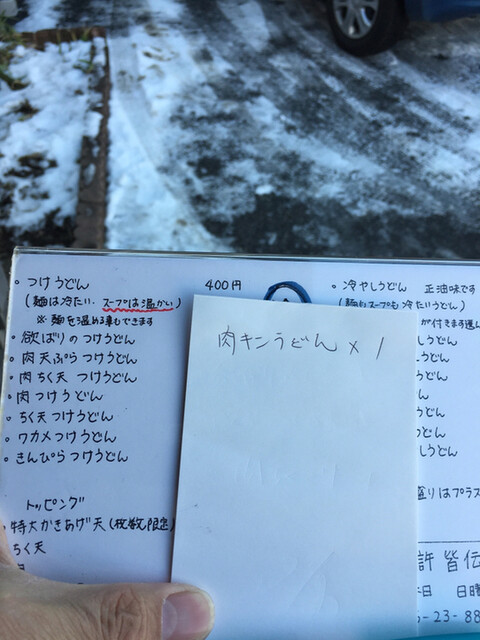 ・つけうどん 400円
(麺は冷たい、スープは温かい)
※麺を温める事もできます
・欲ばりのつけうどん
・肉天ぷらつけうどん
・肉ちく天つけうどん
・肉つけうどん
・ちく天つけうどん
・ワカメつけうどん
・きんぴらつけうどん
トッピング
・特大かきあげ天(枚数限定)
ちく天
肉キンうどん×1
・冷やしうどん 正油味です
(麺もスープも冷たいうどん)
が付きます
しうどん
うどん
うどん
うどん
うどん
しうどん
盛りはプラス
許皆伝
日 日曜
-23-88